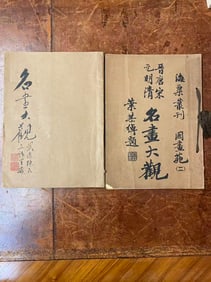 海粟叢刊 國畫苑(二)
晉唐宋
元明清
名畫大觀
葉恭綽題
名畫大觀